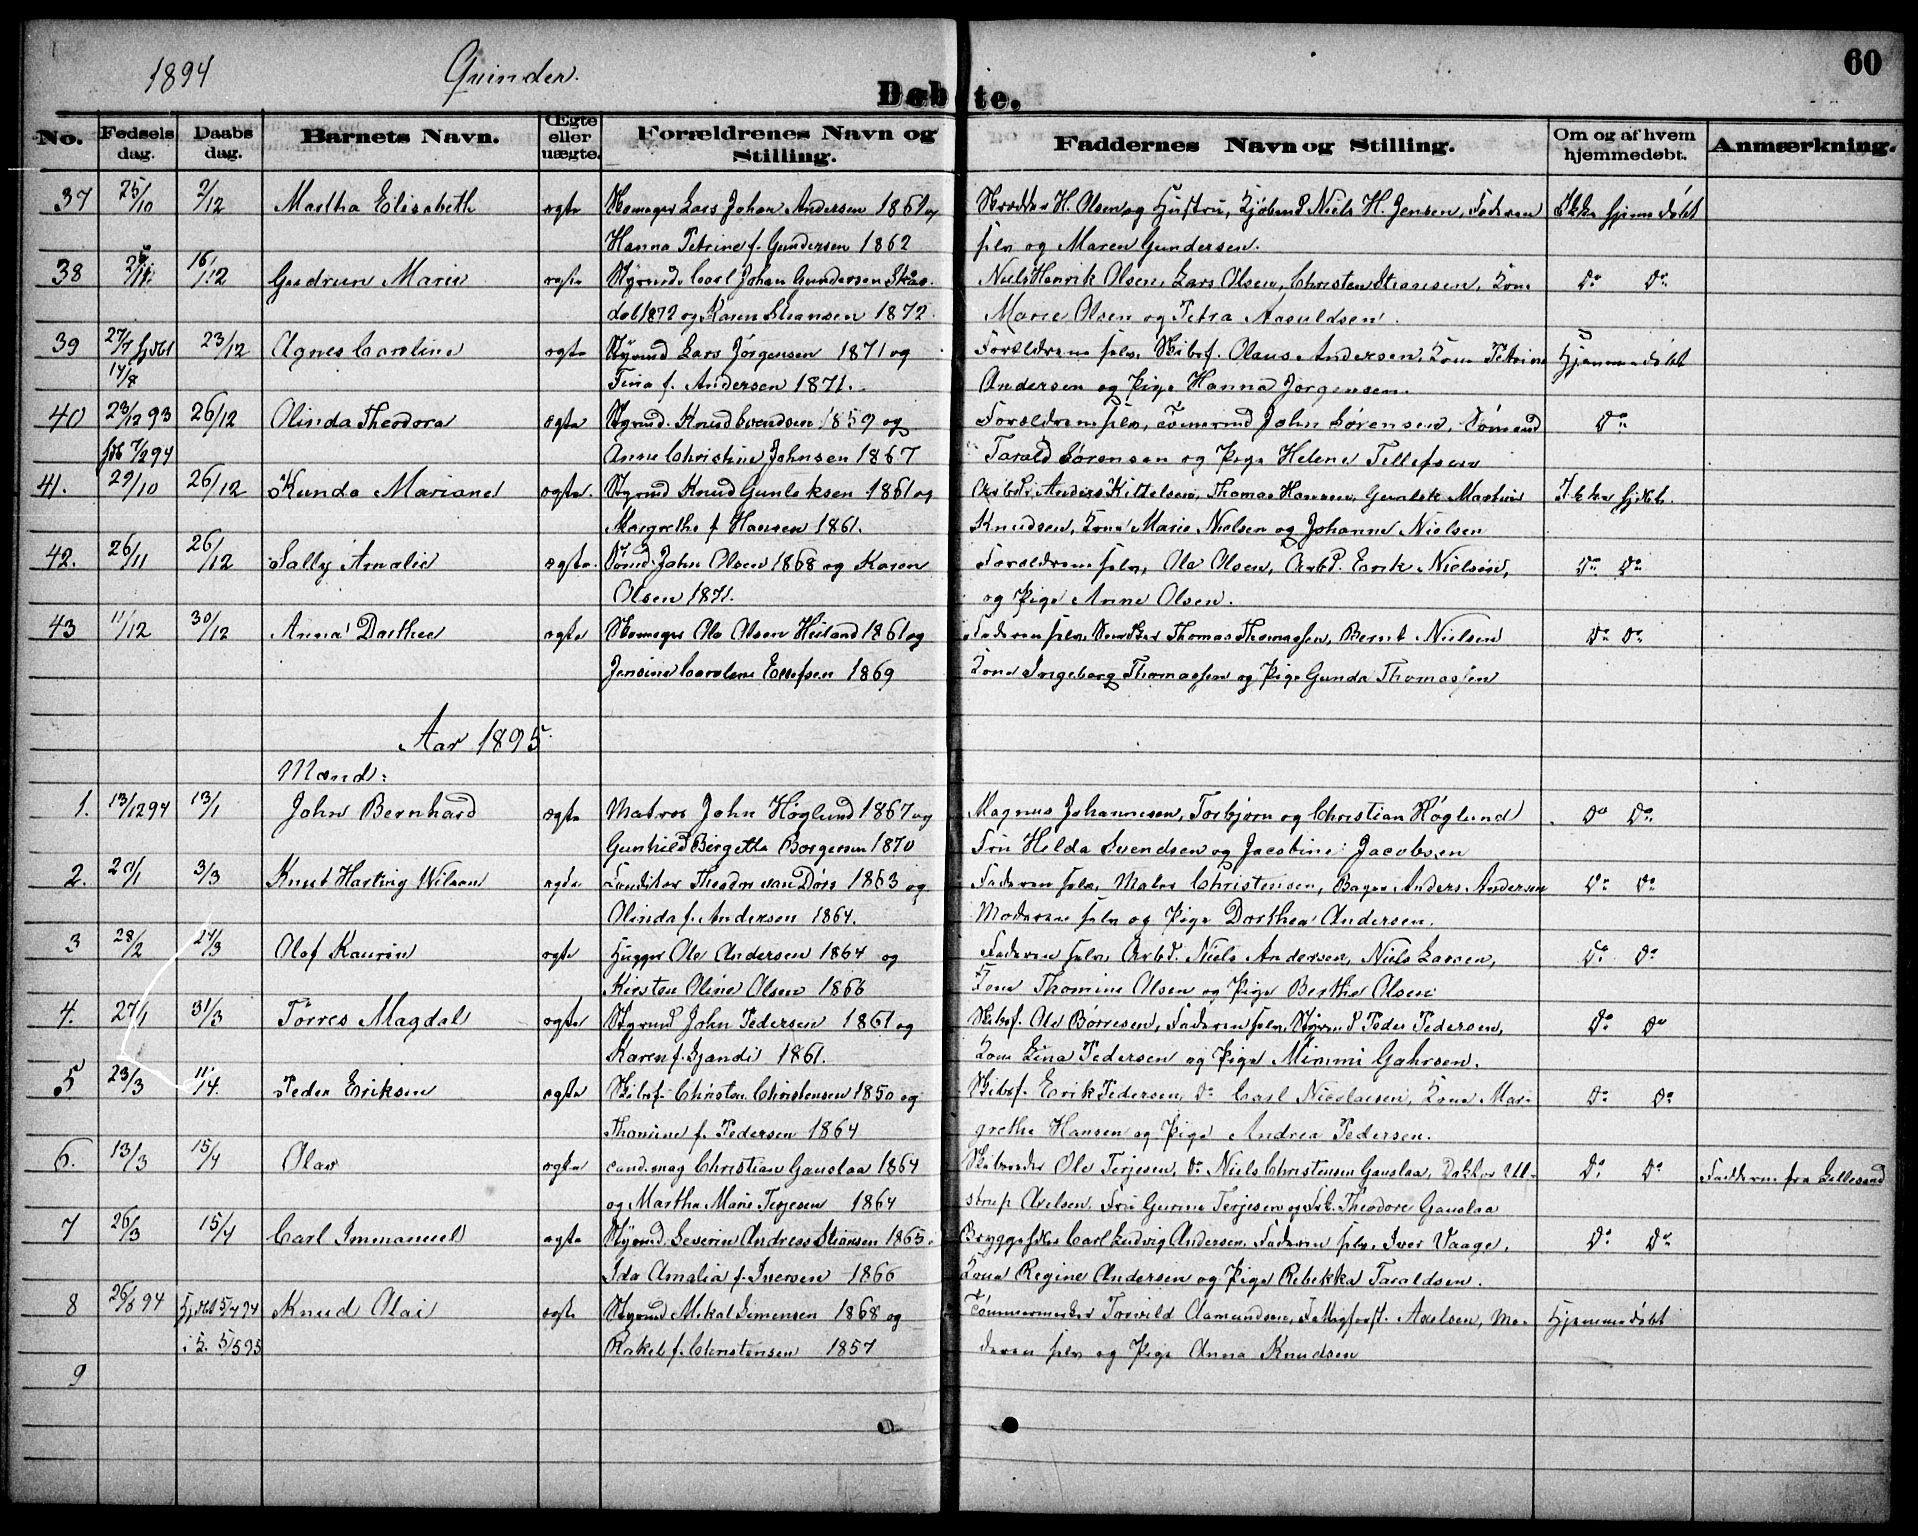 1894 Qvinder.
60
Døbte.
No. Fødsels dag. Daabs dag. Barnets Navn. Ægte eller uægte. Forældrenes Navn og Stilling. Faddernes Navn og Stilling. Om og af hvem hjemmedøbt. Anmærkning.
37 25/10 2/12 Martha Elisabeth ægte Skomager Lars Johan Andersen 1861 og Skrædder H. Olsen og Hustru, Kjøbmd Niels H. Jensen, Faderen Ikke hjemmedøbt
Hanna Petrine f. Gundersen 1862 selv og Maren Gundersen.
38 16/12 Gudrun Marie ægte Styrmd. Carl Johan Gundersen Skaa- Niels Henrik Olsen, Lars Olsen, Christen Stiansen, Kone Do Do
dal 1872 og Karen Stiansen 1872. Marie Olsen og Petra Aasuldsen.
39 27/7 hjdbt 23/12 Agnes Caroline ægte Styrmd Lars Jörgensen 1871 og Forældrene selv, Skibsf. Olaus Andersen, Kone Petrine Hjemmedöbt
14/8 Tina f. Andersen 1871. Andersen og Pige Hanna Jorgensen.
40 23/12 93 26/12 Olinda Theodora ægte Styrmd. Knud Svendsen 1859 og Forældrene selv, Tömmermd John Sörensen, Sömand Do
7/2 94 Anne Christine Johnsen 1867 Tarald Sörensen og Pige Helene Tellefsen
41. 29/10 26/12 Kunda Mariane ægte. Styrmd Knud Gunleksen 1861 og Arbd. Anders Kittelsen, Thomas Hansen, Martin Ikke hjdbt.
Margrethe f. Hansen 1861. Knudsen, Kone Marie Nielsen og Johanne Nielsen
42. 26/11 26/12 Sally Amalie ægte. Sömd. John Olsen 1868 og Karen Forældrene selv, Ole Olsen, Arbd. Erik Nielsen, Do Do
Olsen 1871. og Pige Anne Olsen.
43 11/12 30/12 Anna Dorthea ægte Skomager Ole Olsen Heiland 1861 og Faderen selv, Snedker Thomas Thomassen, Bernt Nielsen Do Do
Jensine Caroline Ellefsen 1869 Kone Ingeborg Thomassen og Pige Gunda Thomassen
Aar 1895.
Mænd:
1. 13/12 94 13/1 John Bernhard ægte Matros John Höglund 1867 og Magnus Johannesen, Torbjörn og Christian Höglund Do Do
Gunhild Birgette Borgersen 1870 Fru Helda Svendsen og Jacobine Jacobsen
2. 20/1 3/3 Knut Harling Wilson ægte Konditor Theodor van Dörs 1863 og Faderen selv, Maler Christensen, Bager Anders Andersen Do Do
Olinda f. Andersen 1864. Moderen selv og Pige Dorthea Andersen.
3 28/2 24/3 Olof Kaurin ægte Hugger Ole Andersen 1864 og Faderen selv, Arbd. Niels Andersen, Niels Larsen, Do Do
Kirsten Oline Olsen 1866 Kone Thomine Olsen og Pige Berthe Olsen
4. 27/1 31/3 Törres Magdal ægte Styrmd John Pedersen 1861 og Skibsf. Ole Börresen, Faderen selv, Styrmd Peder Pedersen, Do Do
Karen f. Gjandi 1861. Kone Lina Pedersen og Pige Mimmi Gahrsen.
5 23/3 11/4. Peder Eriksen ægte Skibsf. Christen Christensen 1850 og Skibsf. Erik Pedersen, Do Carl Nicolaisen, Kone Mar- Do Do
Thomine f. Pedersen 1864 grethe Hansen og Pige Andrea Pedersen.
6. 13/3 15/4 Olav ægte cand. mag Christian Gauslaa 1864 Skibsreder Ole Terjesen, Do Niels Christensen Gauslaa, Doktor Ul- Do Do Fadderne fra Lillesand
og Martha Marie Terjesen 1864 strup Axelsen, Fru Gurine Terjesen og Frk. Theodore Gauslaa
7 26/3 15/4 Carl Immanuel ægte Styrmd. Severin Andreas Stiansen 1865. Carl Ludvig Andersen, Faderen selv, Iver Vaage, Do Do
Ida Amalia f. Iversen 1866 Kone Regine Andersen og Pige Rebekka Taraldsen.
8 26/3 94 Hjdbt 5/4 94 Knud Olai ægte Styrmd Mikal Simensen 1868 og Tömmermester Torvild Aamundsen, Axelsen, Mo- Hjemmedöbt
i K. 5/5 95 Rakel f. Christensen 1857 deren selv og Pige Anna Knudsen
9